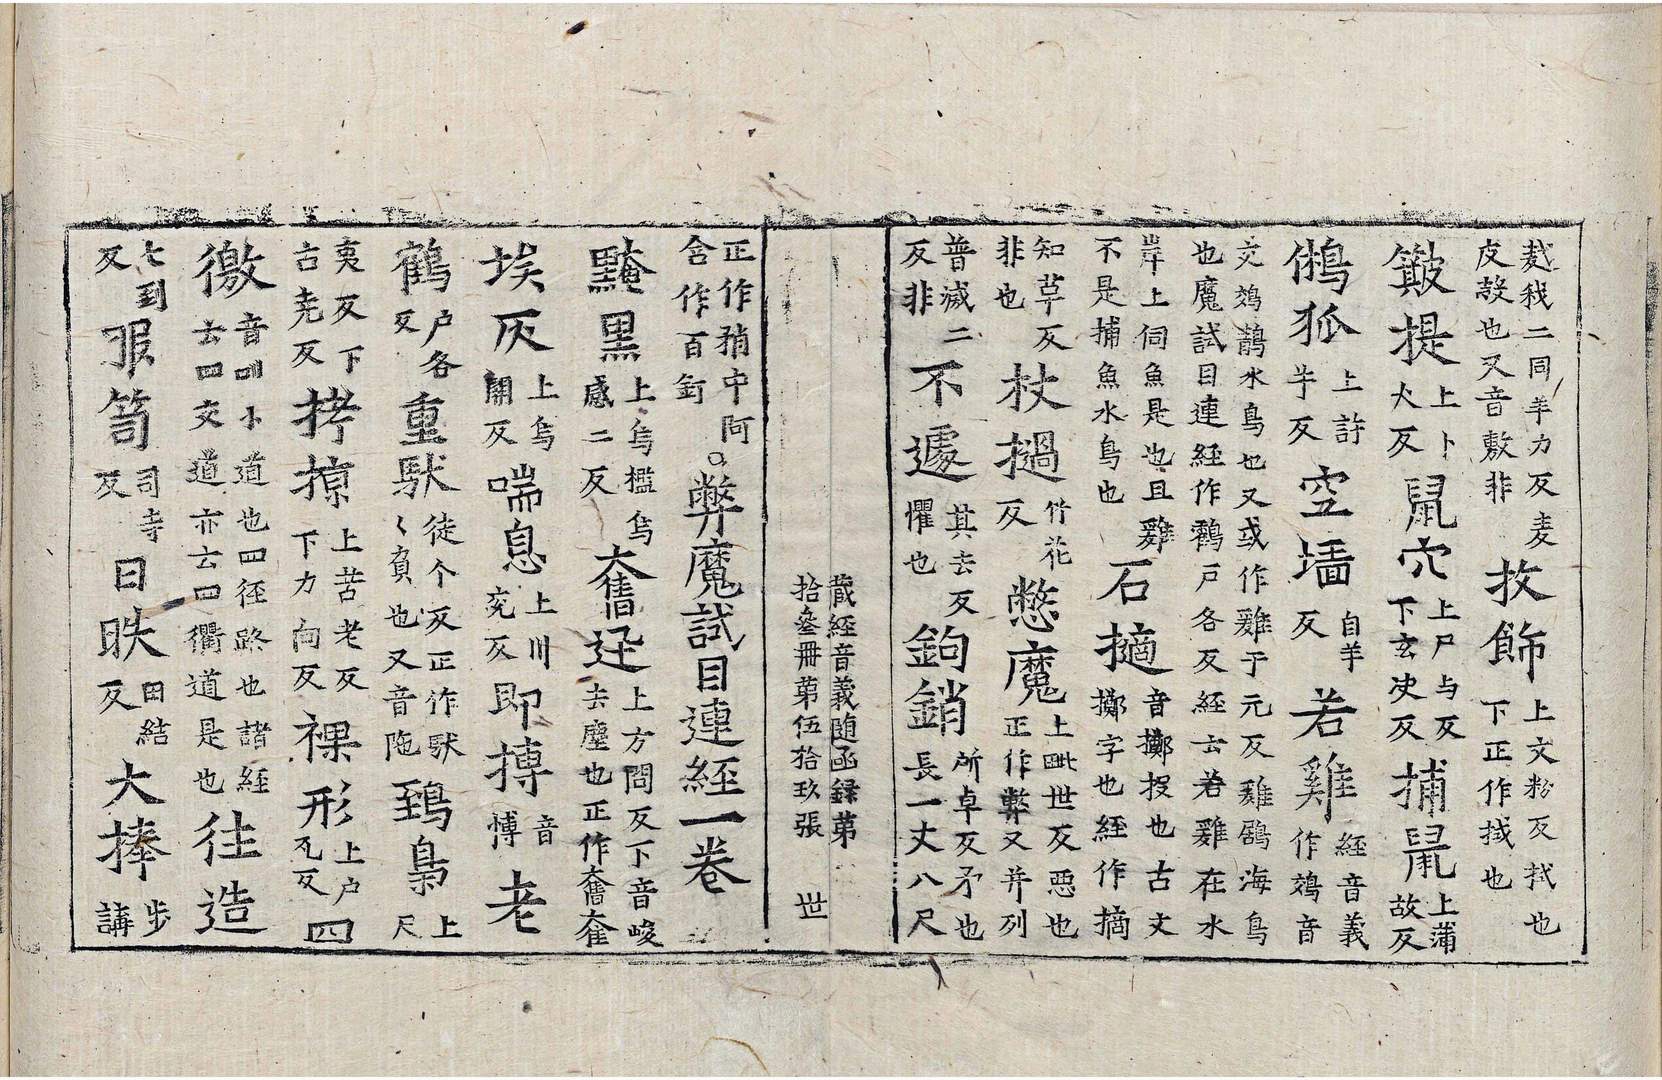 麦我二同羊力反麦皮𣪠也又音敷非抆飾上文粉反拭也下正作拭也
簸提上卜火反鼠穴上尸与反下玄决反捕鼠上蒲故反
鵂狐上詩牛反空墻自羊反若雞經音義作鵁音
交鵁鶄水鳥也又或作雞于元反雞鶋海鳥也魔試目連經作鸖戸各反經云若雞在水
岸上伺魚是也且雞不是捕魚水鳥也石擿音擲投也古文擲字也經作摘
知草反非也杖撾竹花反憋魔上毗世反惡也正作弊又并列
普滅二反非不遽其去反懼也鉤銷所卓反矛也長一丈八尺
藏經音義随函録苐拾叄冊苐伍拾玖張 丗
正作𥠖中阿含作百釘。弊魔試目連經一卷
黤黒上烏檻烏感二反奮迅上方問反下音峻去塵也正作奮奞
埃灰上烏開反喘息上川兖反即摶音博老
鶴户各反重馱徒个反正作馱〻負也又音陁鵄梟上尺
夷反下古尭反拷掠上苦老反下力向反裸形上户瓦反四
徼音叫小道也四徑路也諸經云四交道亦云四衢道是也往造
七到反服笥司寺反日昳田結反大捧步講